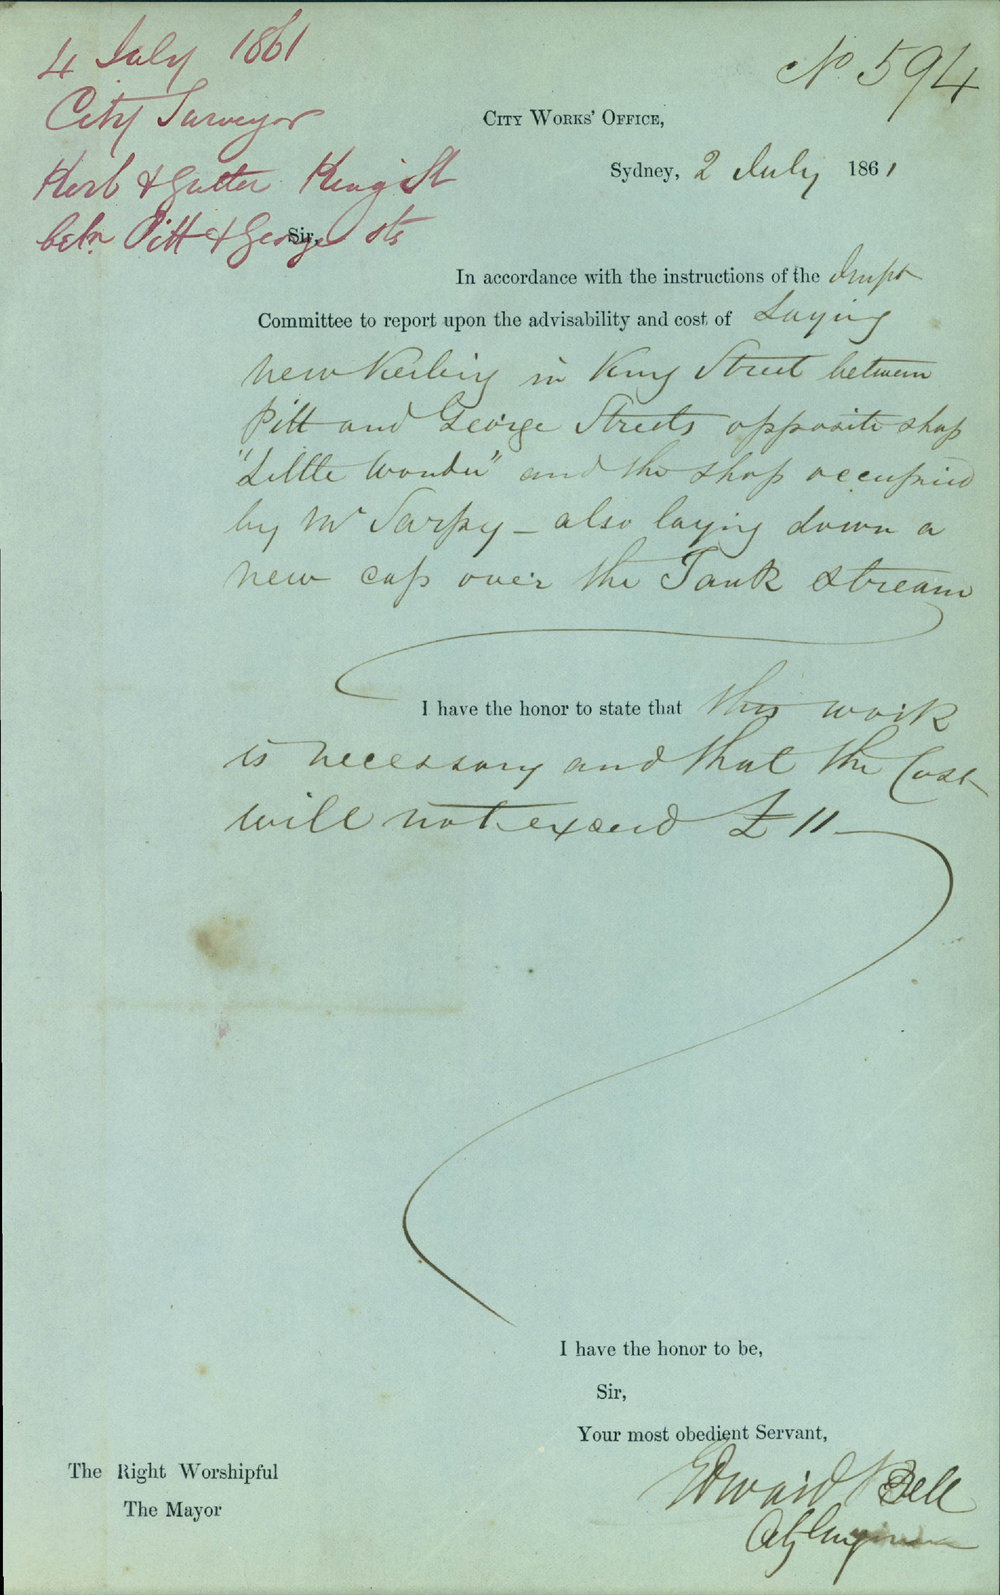 4 July 1861
City Surveyor
Kerb & Gutter King St
betn Pitt & George sts
No 594
CITY WORKS' OFFICE,
Sydney, 2 July 1861
Sir,
In accordance with the instructions of the Impt
Committee to report upon the advisability and cost of Laying
new Kerbing in King Street between
Pitt and George Streets opposite shop
"Little Wonder" and the shop occupied
by Mr Sarpy - also laying down a
new cap over the Tank stream
I have the honor to state that this work
is necessary and that the Cost
will not exceed £11
I have the honor to be,
Sir,
Your most obedient Servant,
Edward Bell
City Engineer
The Right Worshipful
The Mayor